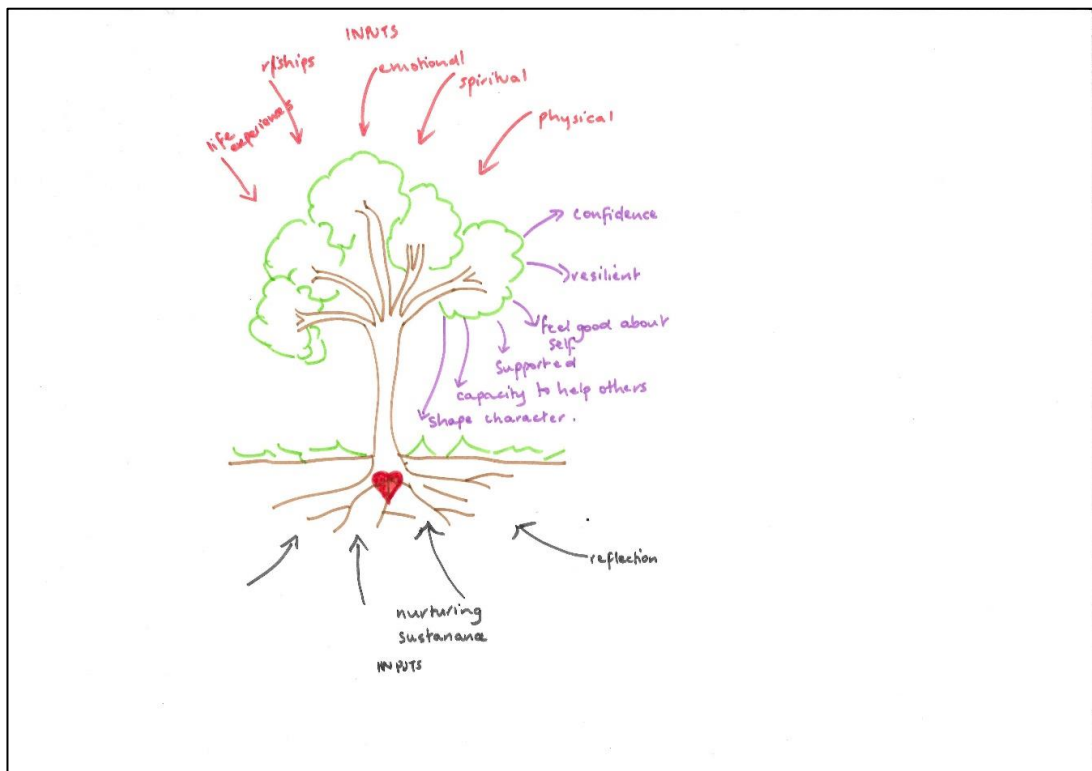 INPUTS
r/ships
emotional
spiritual
physical
life
experiences
confidence
resilient
feel good about
self
supported
capacity to help others
shape character.
reflection
nurturing
sustanance
INPUTS